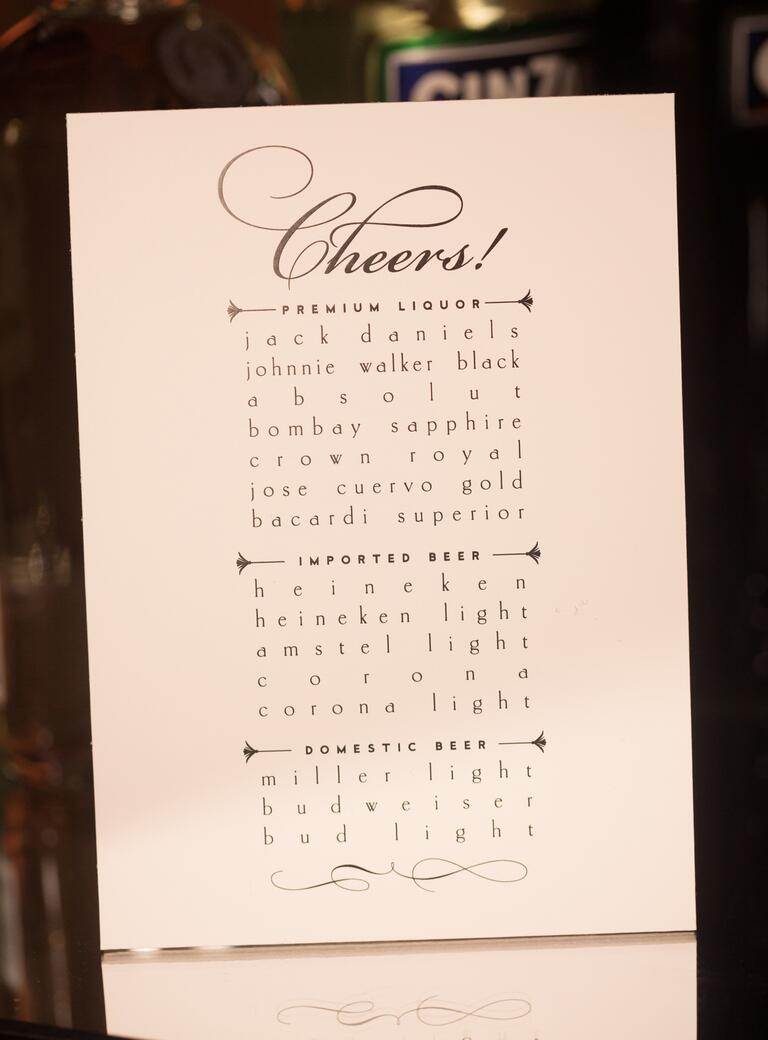 CINZ
Cheers!
PREMIUM LIQUOR
jack daniels
johnnie walker black
absolut
bombay sapphire
crown royal
jose cuervo gold
bacardi superior
IMPORTED BEER
heineken
heineken light
amstel light
corona
corona light
DOMESTIC BEER
miller light
budweiser
bud light